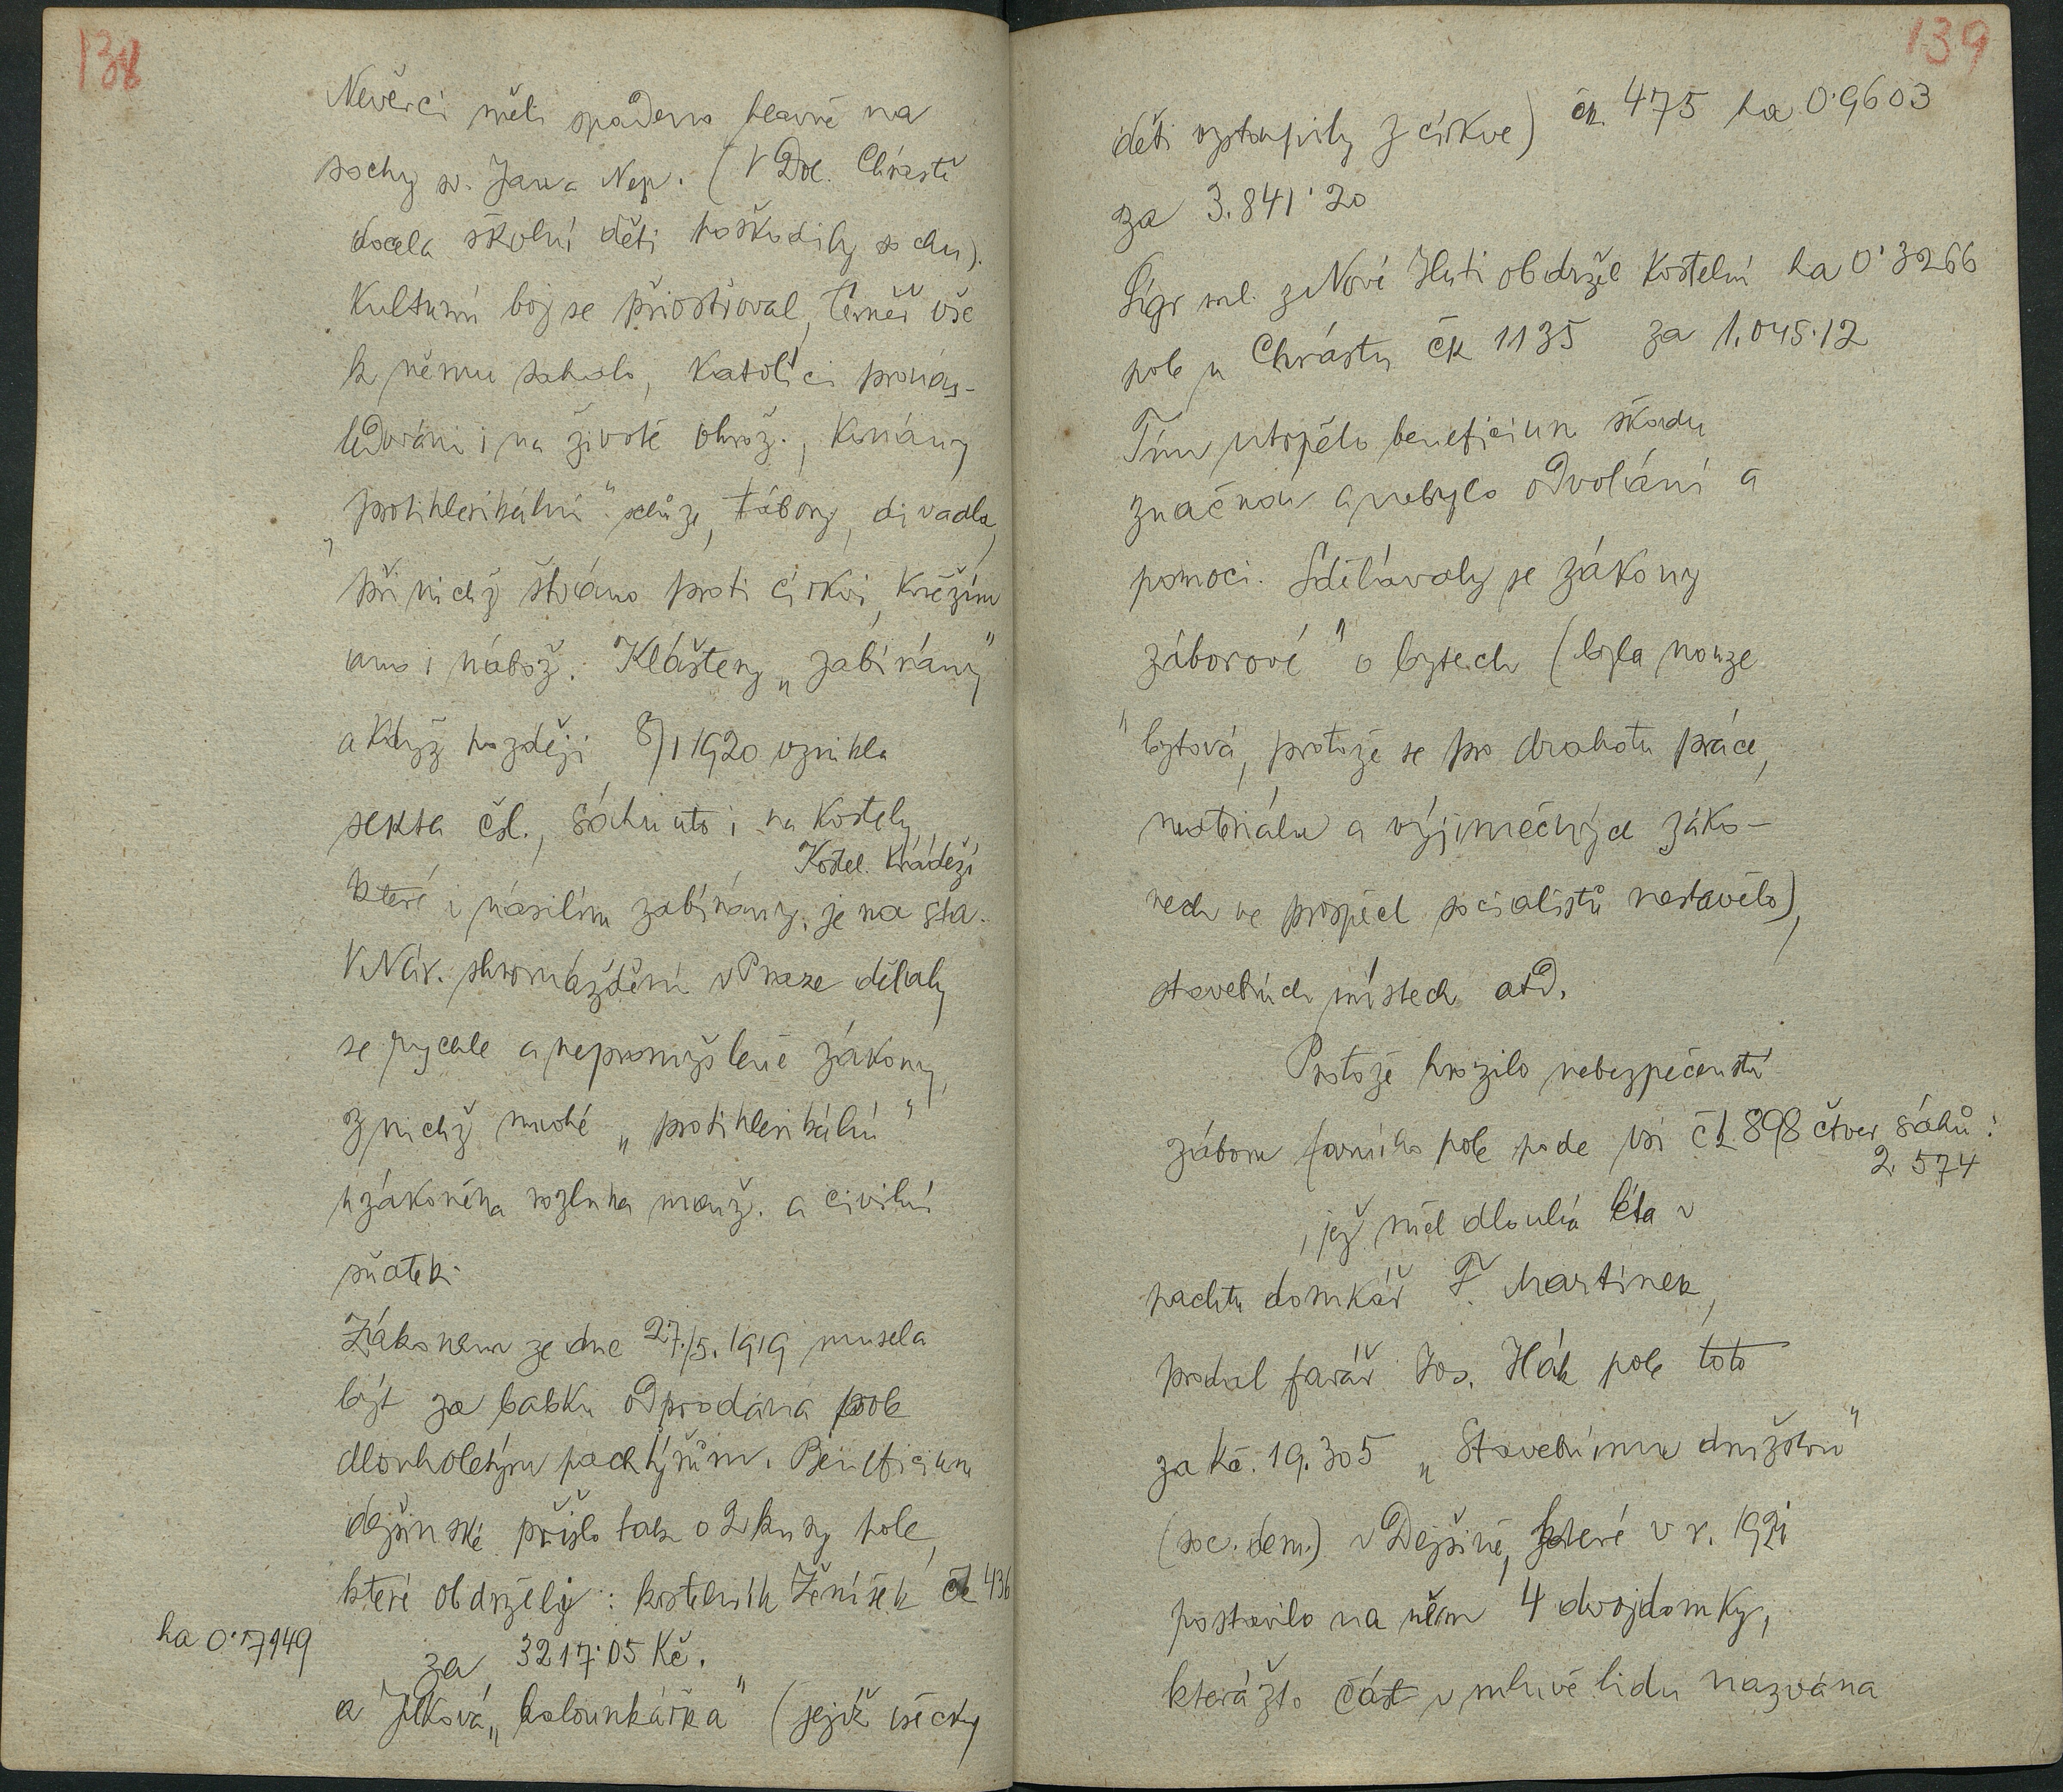 138
Nevěrci měli spadeno hlavně na
sochy sv. Jana Nep. (V Dol. Chrástě
docela školní děti poškodily sochu).
Kulturní boj se přiostřoval, téměř vše
k němu sahalo, Katolíci pronás-
ledováni i na životě ohrož., Konány
„protiklerikální" schůze, tábory, divadla,
při nichž štváno proti církvi, kněžím
ano i nábož. Kláštery „zabírány"
a když později 8/1 1920 vznikla
sekta čsl., sáhnuto i na kostely,
Kostel. krádeží
které i násilím zabírány. je na sta.
V Nár. shromáždění v Praze dělaly
se rychle a nepromyšleně zákony,
z nichž mnohé „protiklerikální"
uzákoněna rozluka manž. a civilní
sňatek.
Zákonem ze dne 27./5. 1919 musela
být za babku odprodána pole
dlouholetým pachtýřům. Beneficium
dejšinské přišlo tak o 2 kusy pole,
které obdržely: kostelník Ženíšek čk 436
ha 0·7949
za 3217·05 Kč.
a Jílková „kalounkářka" (jejíž všecky
139
děti vystoupily z církve) čk. 475 ha 0·9603
za 3.841·20
Šígr ml. z Nové Huti obdržel Kostelní ha 0·3266
pole u Chrástu čk 1135 za 1.045·12
Tím utrpělo beneficium škodu
značnou a nebylo odvolání a
pomoci. Sdělávaly se zákony
„záborové" o bytech (byla nouze
bytová, protože se pro drahotu práce,
materiálu a výjimečných záko-
nech ve prospěch socialistů nestavělo),
stavebních místech atd.
Protože hrozilo nebezpečenství
záboru farního pole pode vsí čk 898 čtver. sáhů:
2.574
, jež měl dlouhá léta v
pachtu domkář F. Martínek,
prodal farář Jos. Hák pole toto
za Kč. 19.305 „Stavebnímu družstvu"
(soc. dem.) v Dejšině, které v r. 1921
postavilo na něm 4 dvojdomky,
kterážto část v mluvě lidu nazvána